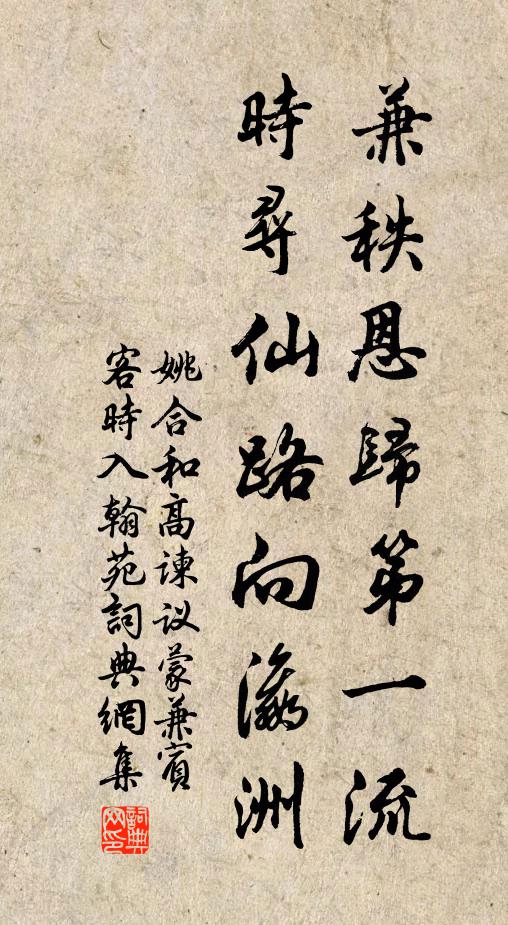 兼秩恩歸第一流
時尋仙路向瀛洲
姚合和高諫议蒙兼賓
客時入翰苑詞典網集
詞典
网印